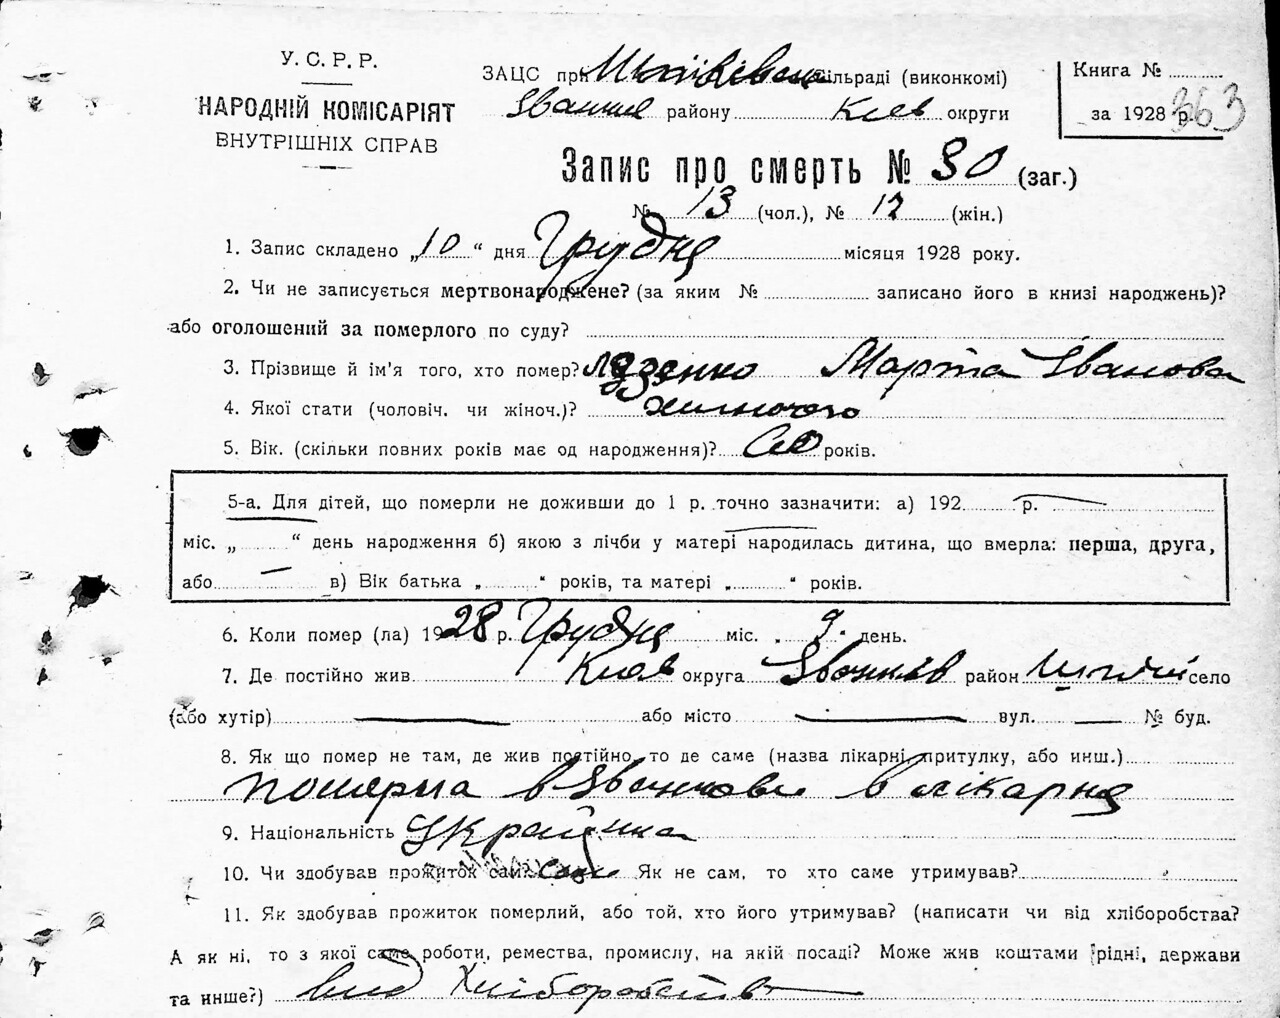 У. С. Р. Р.
НАРОДНІЙ КОМІСАРІЯТ
ВНУТРІШНІХ СПРАВ
ЗАЦС при сільраді (виконкомі)
району Киев округи
Книга №
за 1928 р. 363
Запис про смерть № 30 (заг.)
№ 13 (чол.), № 17 (жін.)
1. Запис складено „10“ дня Грудня місяця 1928 року.
2. Чи не записується мертвонароджене? (за яким № записано його в книзі народжень)?
або оголошений за померлого по суду?
3. Прізвище й ім'я того, хто помер? Марта Іванова
4. Якої стати (чоловіч. чи жіноч.)? жиночого
5. Вік. (скільки повних років має од народження)? років.
5-а. Для дітей, що померли не доживши до 1 р. точно зазначити: а) 192 р.
міс. „ “ день народження б) якою з лічби у матері народилась дитина, що вмерла: перша, друга,
або в) Вік батька „ “ років, та матері „ “ років.
6. Коли помер (ла) 1928 р. Грудня міс. 9 день.
7. Де постійно жив Киев округа район село
(або хутір) або місто вул. № буд.
8. Як що помер не там, де жив постійно, то де саме (назва лікарні, притулку, або инш.)
померла в в лікарня
9. Національність Украйінка
10. Чи здобував прожиток сам? сама Як не сам, то хто саме утримував?
11. Як здобував прожиток померлий, або той, хто його утримував? (написати чи від хліборобства?
А як ні, то з якої саме роботи, ремества, промислу, на якій посаді? Може жив коштами рідні, держави
та инше?) вид Хліборобств